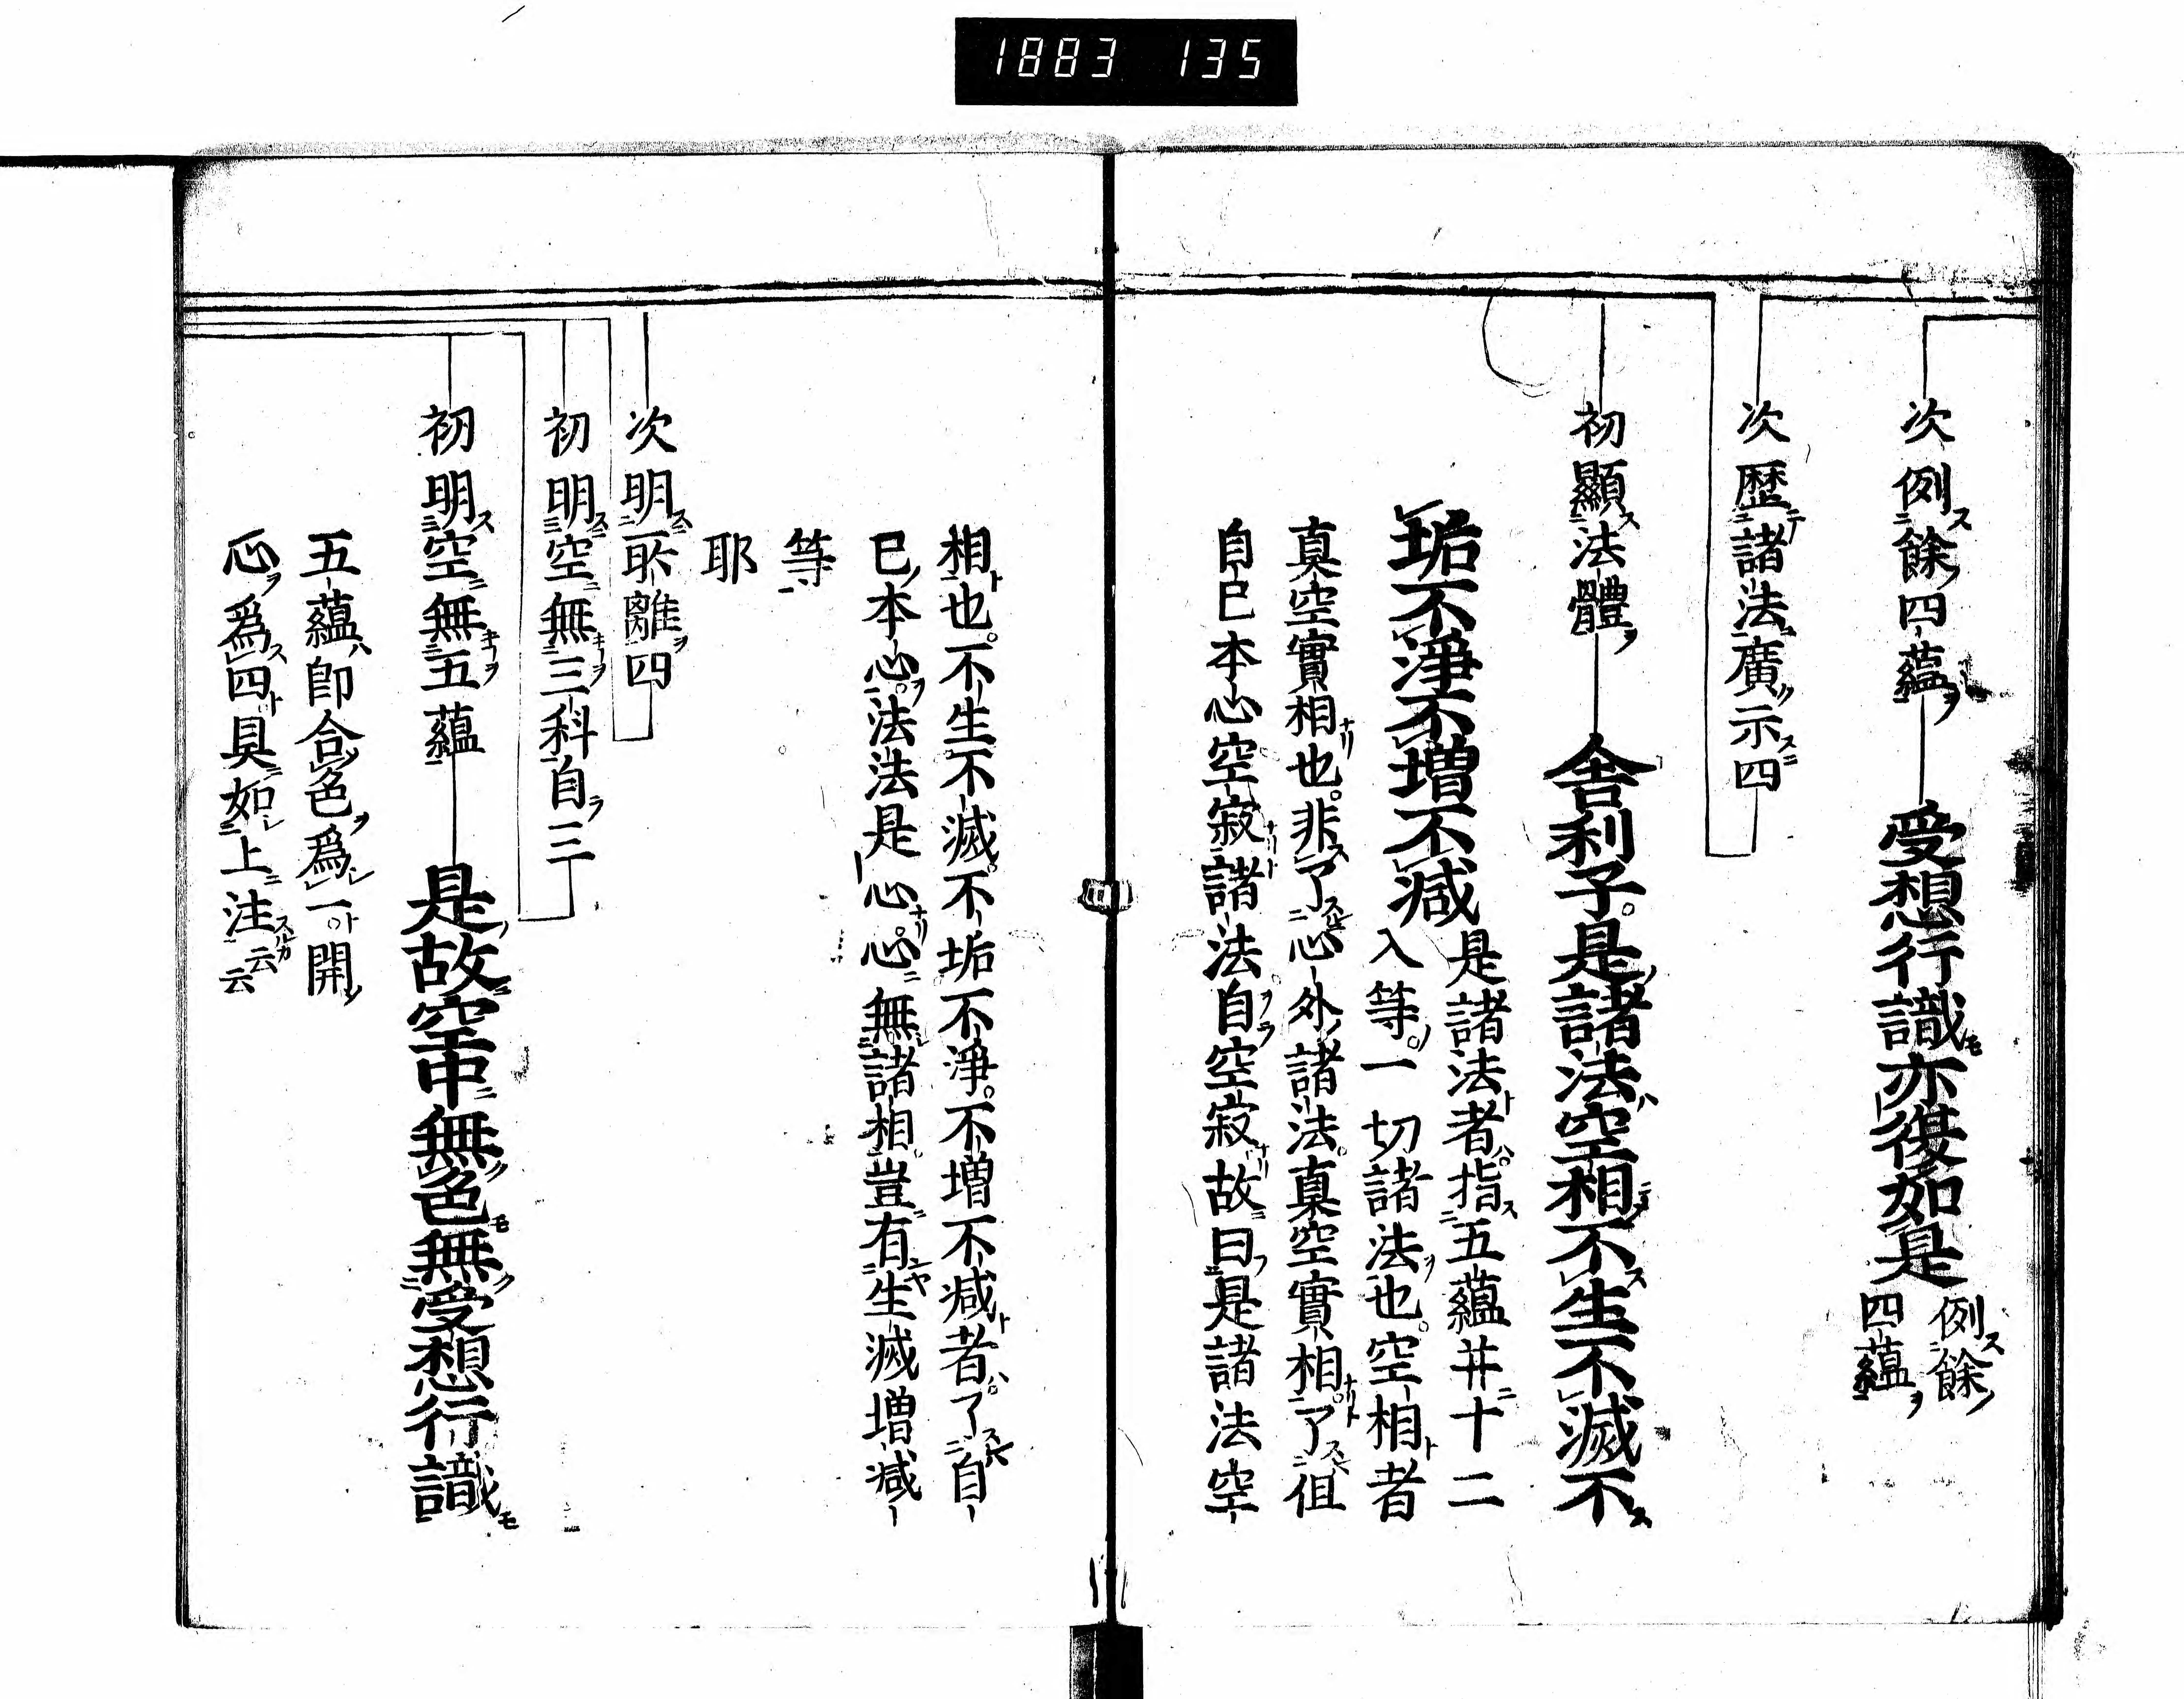 1883 135
次例餘四蘊
受想行識亦復如是
例餘
四蘊
次歷諸法廣示四
初顯法體
舍利子是諸法空相不生不滅不
垢不淨不增不減
是諸法者指五蘊并十二
入等一切諸法也空相者
真空實相也非了心外諸法真空實相了但
自己本心空寂諸法自空寂故曰是諸法空
相也不生不滅不垢不淨不增不減者了自
己本心法法是心心無諸相豈有生滅增減
等
耶
次明所離四
初明空無三科自三
初明空無五蘊
是故空中無色無受想行識
五蘊即合色爲一開
心爲四具如上注云云